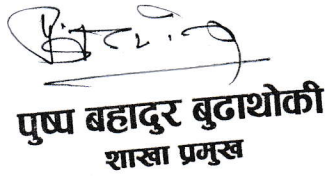 पुष्प बहादुर बुढाथोकी
शाखा प्रमुख